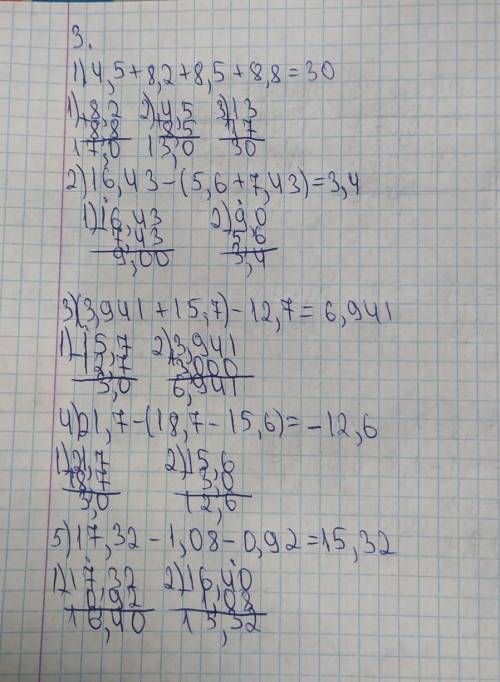 3.
1) 4,5+8,2+8,5+8,8=30
1) +8,2 2) +4,5 3) +13
8,8 8,5 17
17,0 13,0 30
2) 16,43-(5,6+7,43)=3,4
1) -16,43 2) -9,0
7,43 5,6
9,00 3,4
3) (3,941+15,7)-12,7=6,941
1) -15,7 2) +3,941
12,7 3,000
3,0 6,941
4) 21,7-(18,7-15,6)=-12,6
1) -21,7 2) -15,6
18,7 3,0
3,0 12,6
5) 17,32-1,08-0,92=15,32
1) -17,32 2) -16,40
0,92 1,08
16,40 15,32